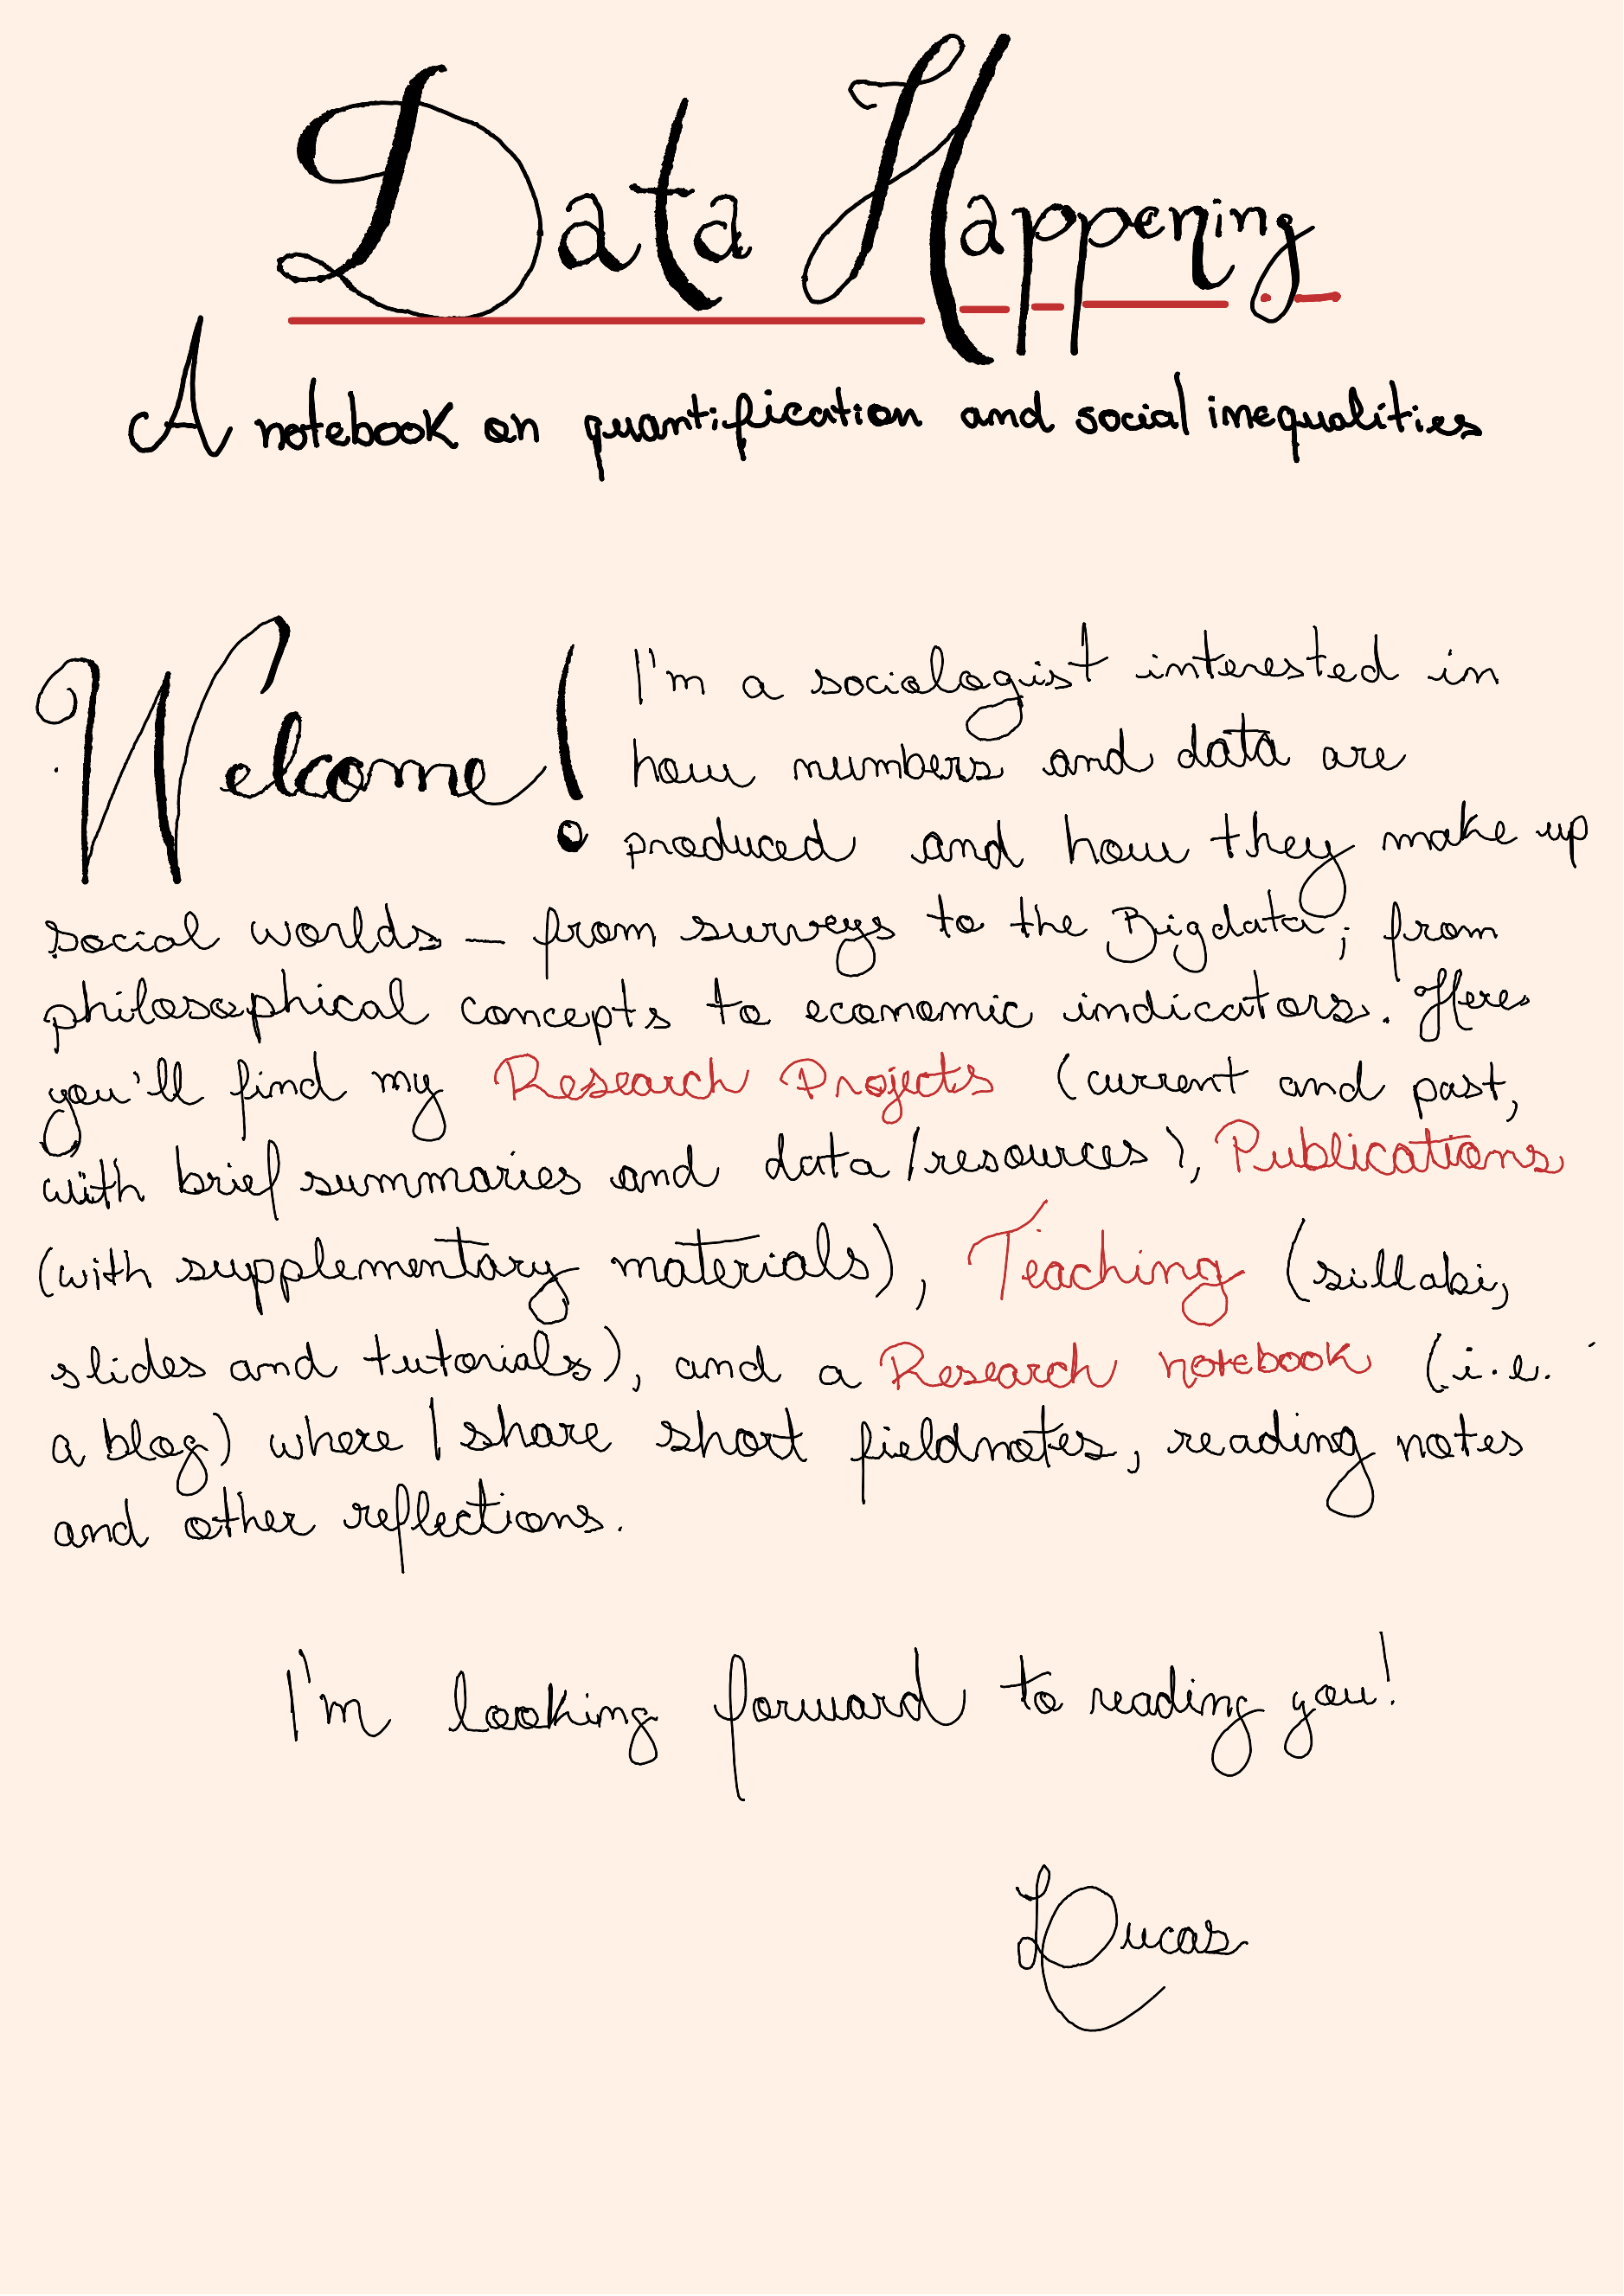 Data Happening
A notebook on quantification and social inequalities
Welcome! I'm a sociologist interested in
how numbers and data are
produced and how they make up
social worlds — from surveys to the Bigdata; from
philosophical concepts to economic indicators. Here
you'll find my Research Projects (current and past,
with brief summaries and data/resources), Publications
(with supplementary materials), Teaching (sillabi,
slides and tutorials), and a Research notebook (i.e.
a blog) where I share short fieldnotes, reading notes
and other reflections.
I'm looking forward to reading you!
Lucas